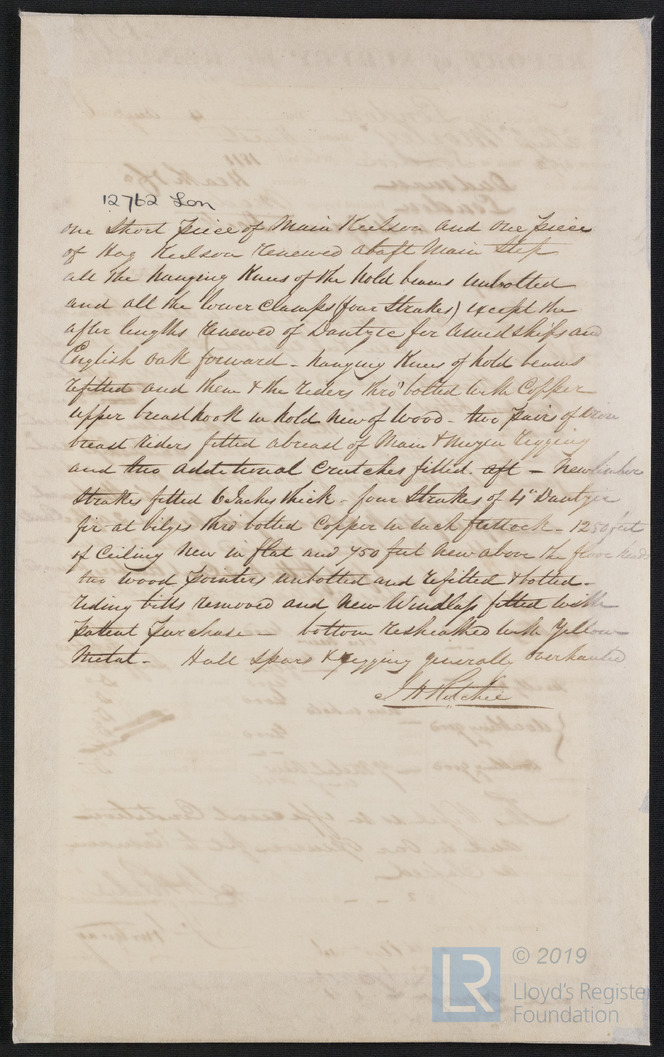 12762 Lon
one Short piece of Main Keilson and one piece
of Hog Keilson renewed abaft Main Step
all the hanging Knees of the hold beams unbolted
and all the lower Clamps (four Strakes) except the
after lengths renewed of Dantzic for amidships and
English Oak forward - hanging Knees of hold beams
refitted and them & the riders thro' bolted with Copper
upper breasthook in hold new of wood - two pairs of iron
breast riders fitted abreast of Main & Mizen rigging
and two additional Crutches fitted aft - New
Strakes fitted 6 inches thick - four Strakes of 4" Dantzic
fir at bilges thro' bolted Copper in each futtock - 1250 feet
of Ceiling New in flat and 450 feet new above the floor heads
two wood pointers unbolted and refitted & bolted -
riding bitts removed and new Windlass fitted with
patent purchase - bottom resheathed with Yellow
Metal - Hull Spars & rigging generally overhauled
J H Ritchie
LR
© 2019
Lloyd's Register
Foundation